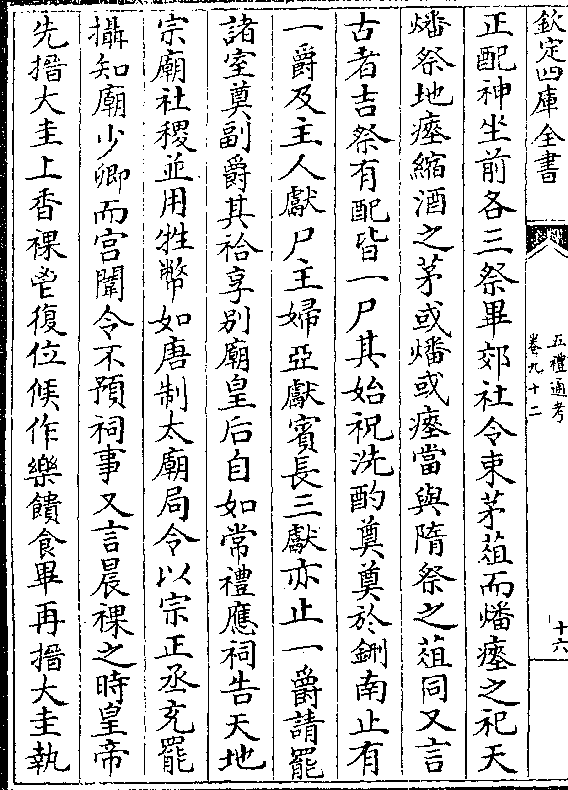 欽定四庫全書
五禮通考
卷九十二
十六
正配神坐前各三祭畢郊社令束茅葅而燔瘞之祀天
燔祭地瘞縮酒之茅或燔或瘞當與隋祭之葅同又言
古者吉祭有配皆一尸其始祝洗酌奠奠於鉶南止有
一爵及主人獻尸主婦亞獻賓長三獻亦止一爵請罷
諸室奠副爵其祫享别廟皇后自如常禮應祠告天地
宗廟社稷並用牲幣如唐制太廟局令以宗正丞充罷
攝知廟少卿而宫闈令不預祠事又言晨祼之時皇帝
先搢大圭上香祼鬯復位候作樂饋食畢再搢大圭執